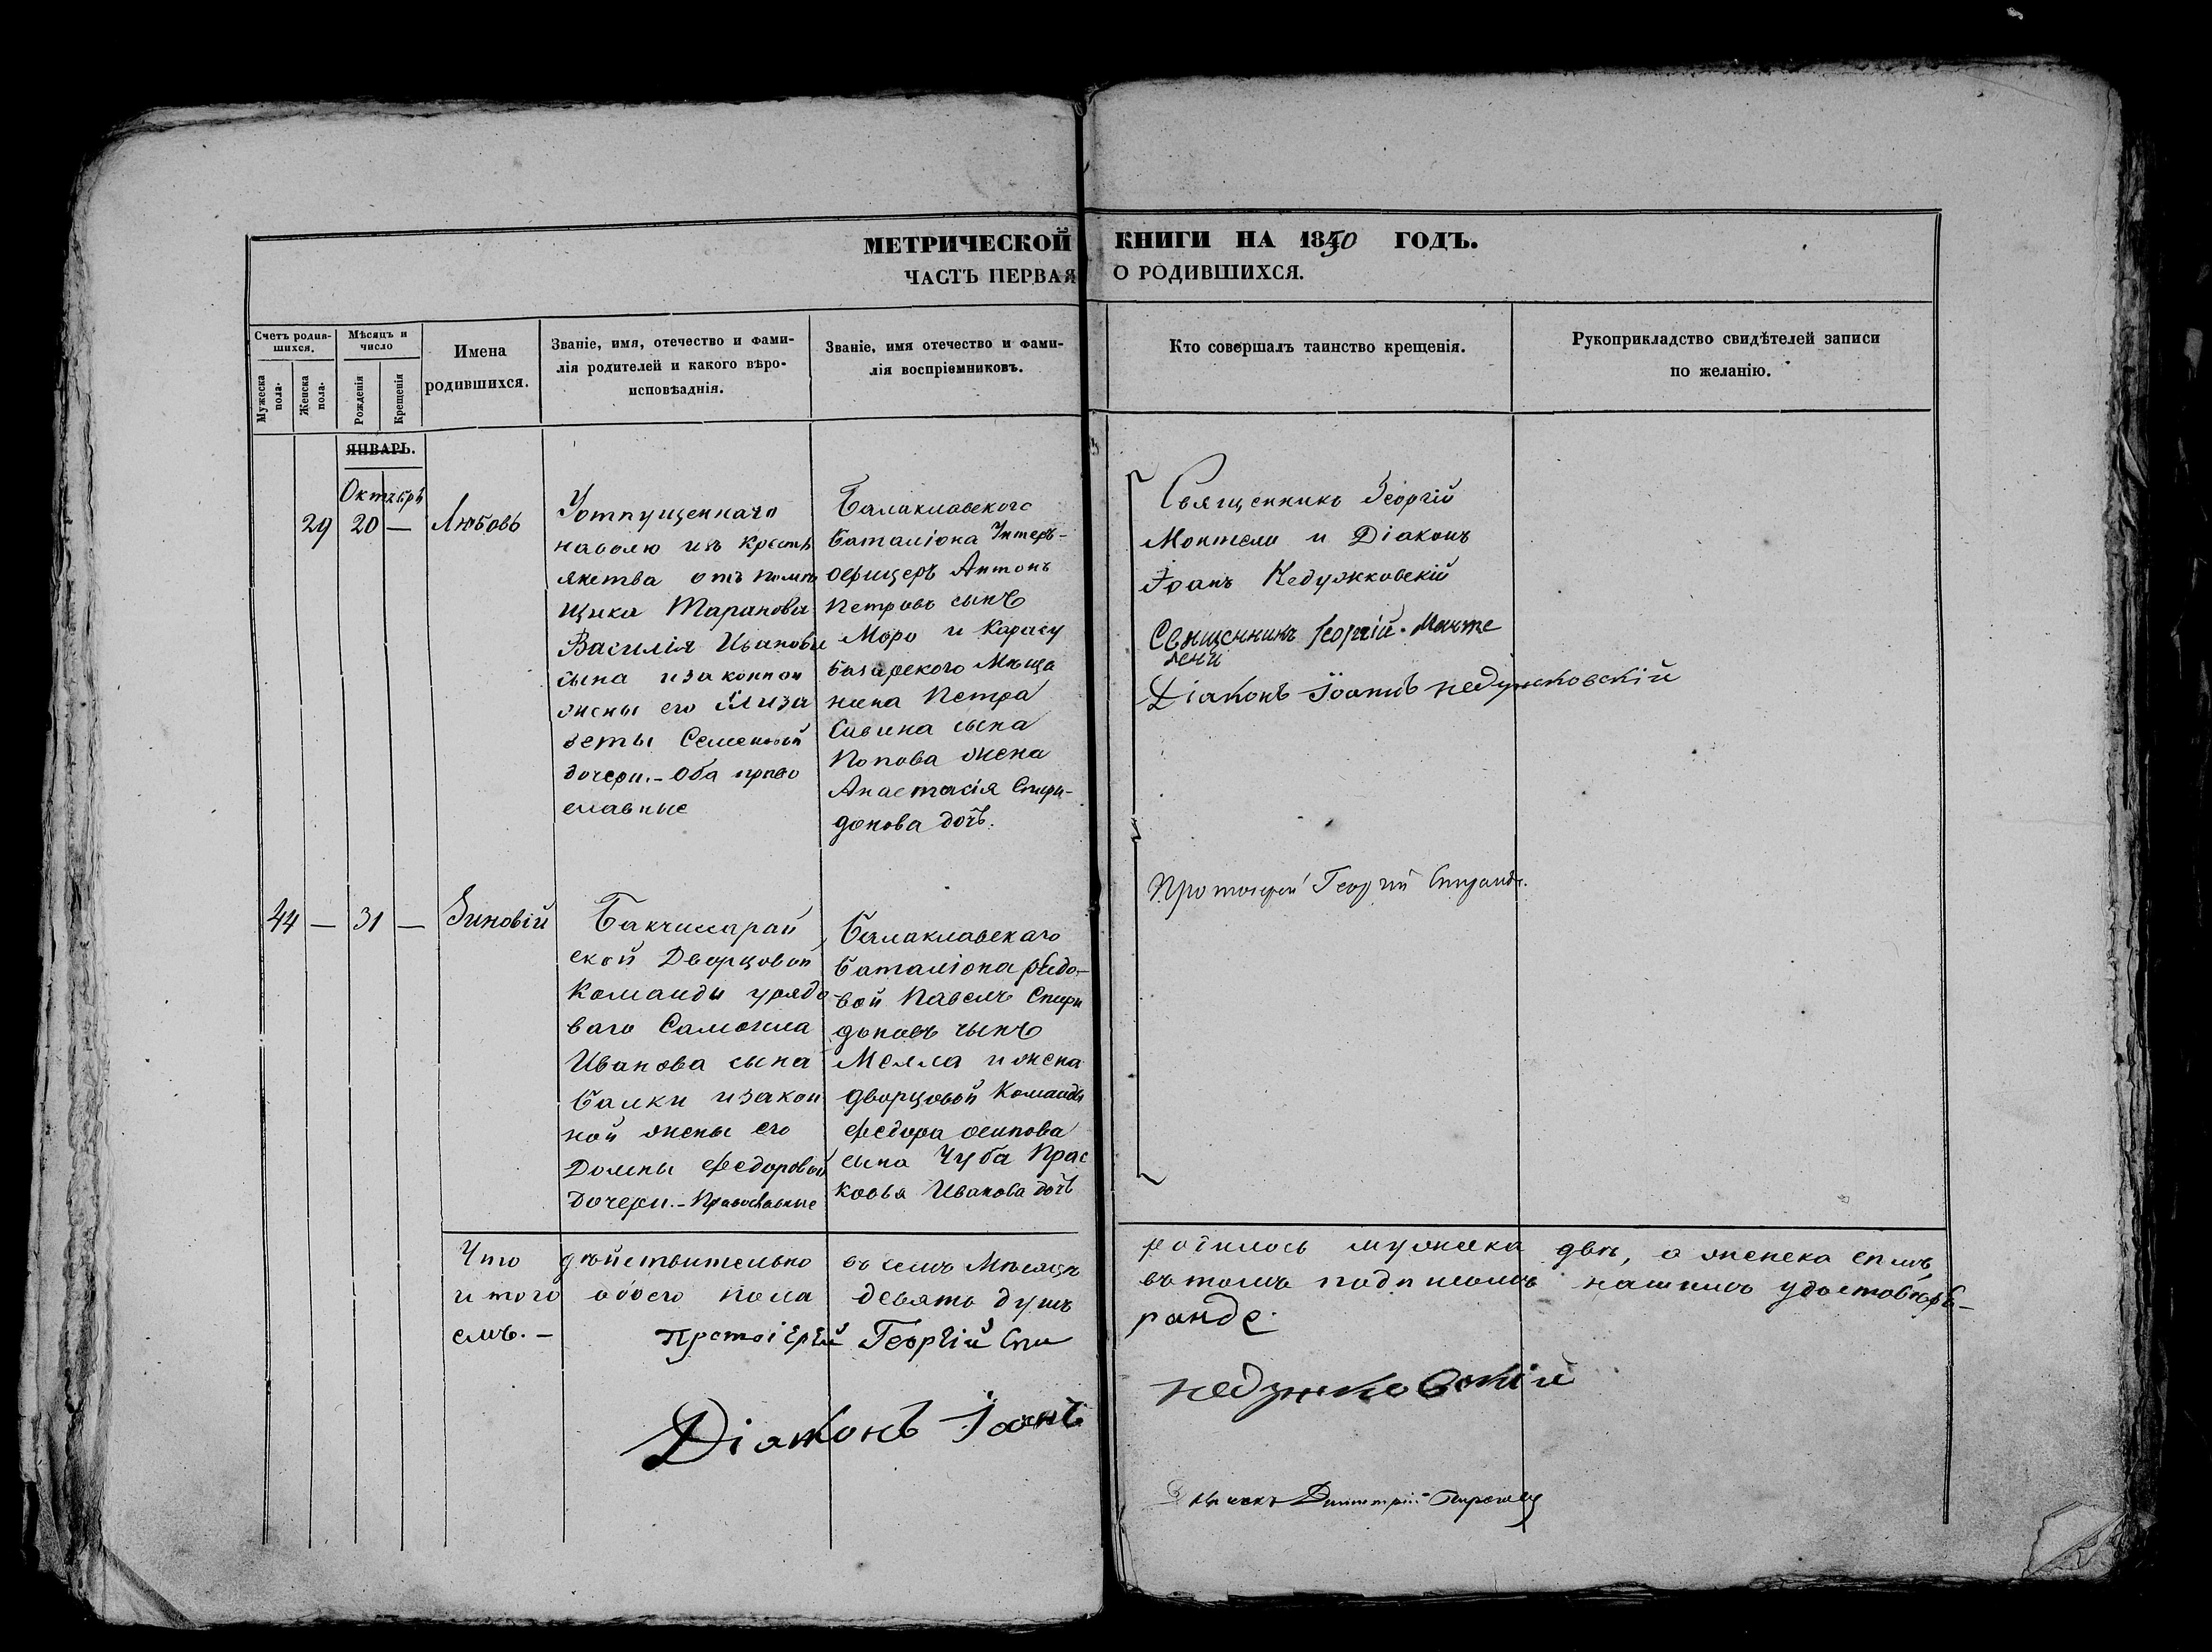 МЕТРИЧЕСКОЙ КНИГИ НА 1850 ГОДЪ.
ЧАСТЬ ПЕРВАЯ О РОДИВШИХСЯ.
Счетъ родив-
шихся.
Мужеска
пола.
Женска
пола.
Мѣсяцъ и
число
Рожденія
Крещенія
Имена
родившихся.
Званіе, имя, отечество и фами-
лія родителей и какого вѣро-
исповѣаднія.
Званіе, имя отечество и фами-
лія воспріемниковъ.
Кто совершалъ таинство крещенія.
Рукоприкладство свидѣтелей записи
по желанію.
ЯНВАРЬ.
Октябрь
29 20 — Любовь
Уотпущеннаго
наволю изъ кресть
янства отъ помѣ
щика Таранова
Василія Иванова
сына изаконной
жены его Елиза
веты Семеновой
дочери. - Оба право
славные
Балаклавского
баталіона Унтеръ-
офицеръ Антонъ
Петровъ сынъ
Моро и Карасу
базарского мѣща
нина Петра
Савина сына
Попова жена
Анастасія Спири-
донова дочь.
Священникъ Георгій
Монтели и Діаконъ
Іоанъ Недужковскій
Священникъ Георгій Монте
Діаконъ Іоаннъ Недужковскій
44 — 31 — Зиновій
Бакчисарай
ской Дворцовой
Команды урядо
ваго Самойла
Иванова сына
Балки изакон
ной жены его
Домны Федоровой
Дочери. - Православные
Балаклавскаго
баталіона рядо-
вой Павелъ Спири
доновъ сынъ
Мелла и жена
дворцовой Команды
Федора осипова
сына Чуба Прас
ковья Иванова дочь
Протоіерей Георгій Спиранде.
Что дѣйствительно въ семъ Мѣсяцѣ родилось мужска двѣ, а женска семь
итого обоего пола девять душъ въ томъ подписомъ нашимъ удостовѣря-
емъ. - Протоіерей Георгій Спи ранде.
Діаконъ Іоанъ Недужковскій
Дмитрій